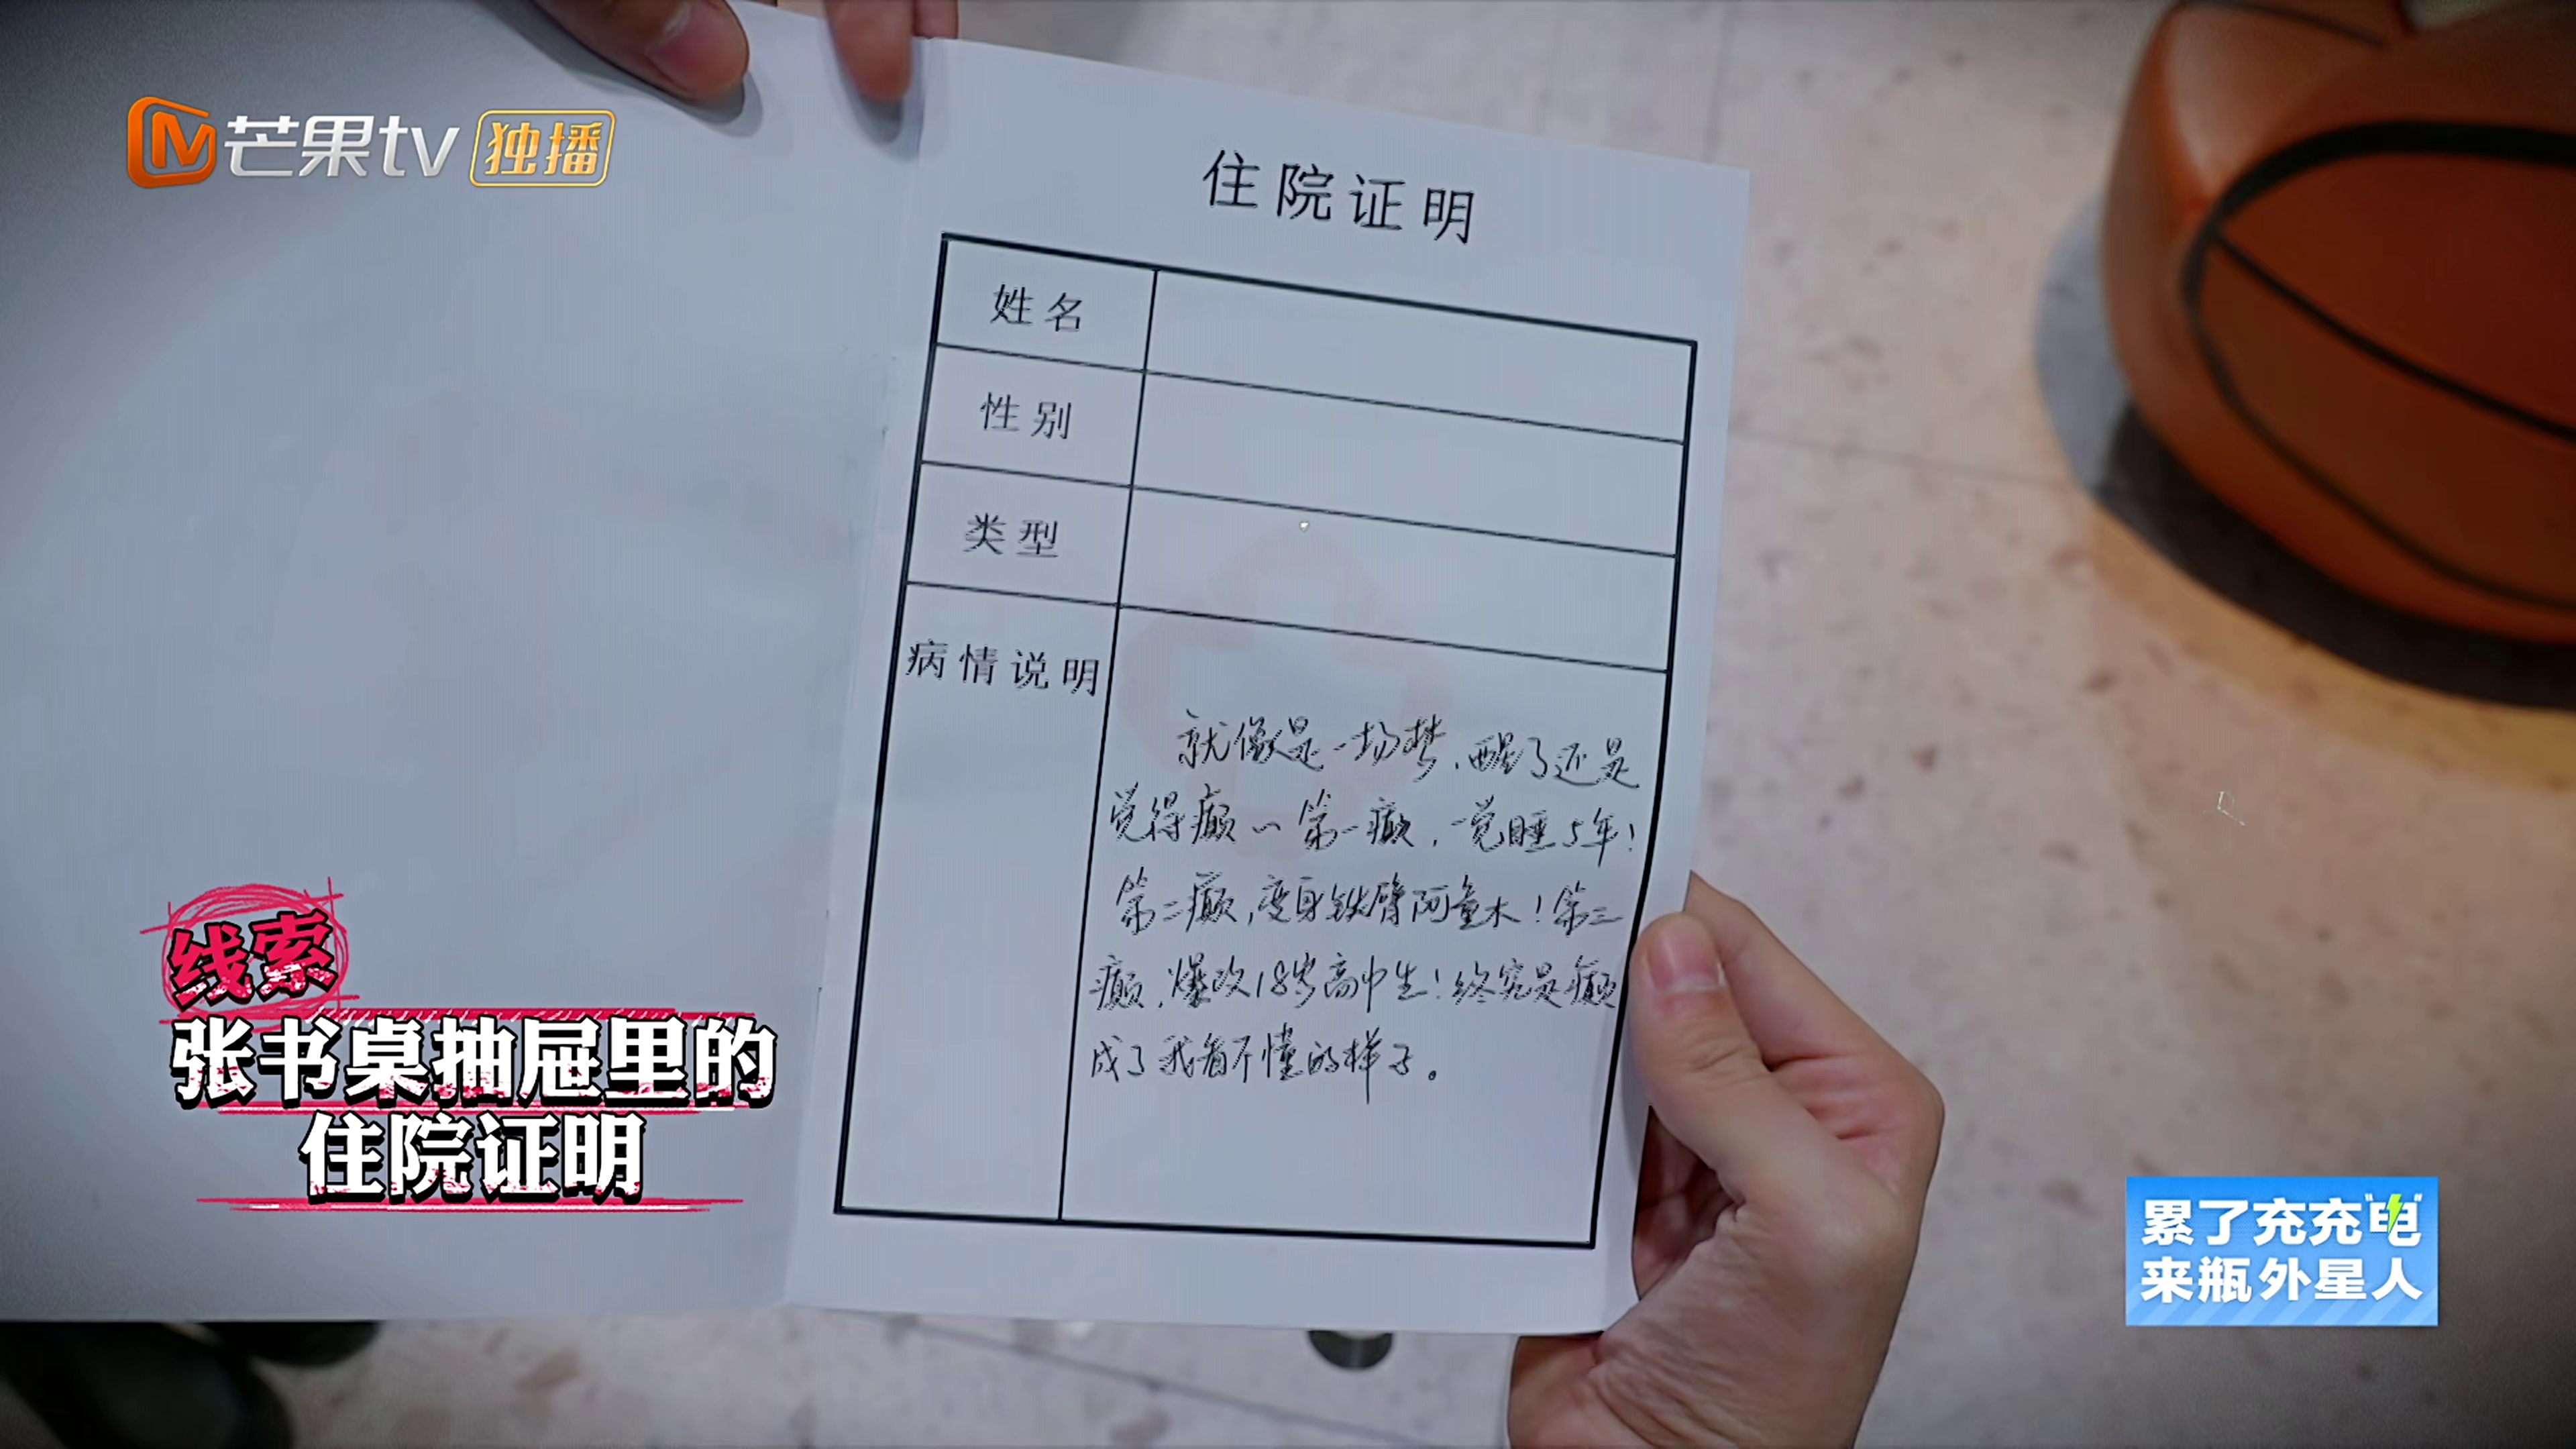 芒果tv 独播
住院证明
姓名
性别
类型
病情说明
就像是一场梦，醒了还是
觉得癫~第一癫，一觉睡5年！
第二癫，变身铁臂阿童木！第三
癫，爆改18岁高中生！终究是癫
成了我看不懂的样子。
线索
张书桌抽屉里的
住院证明
累了充充"电"
来瓶外星人